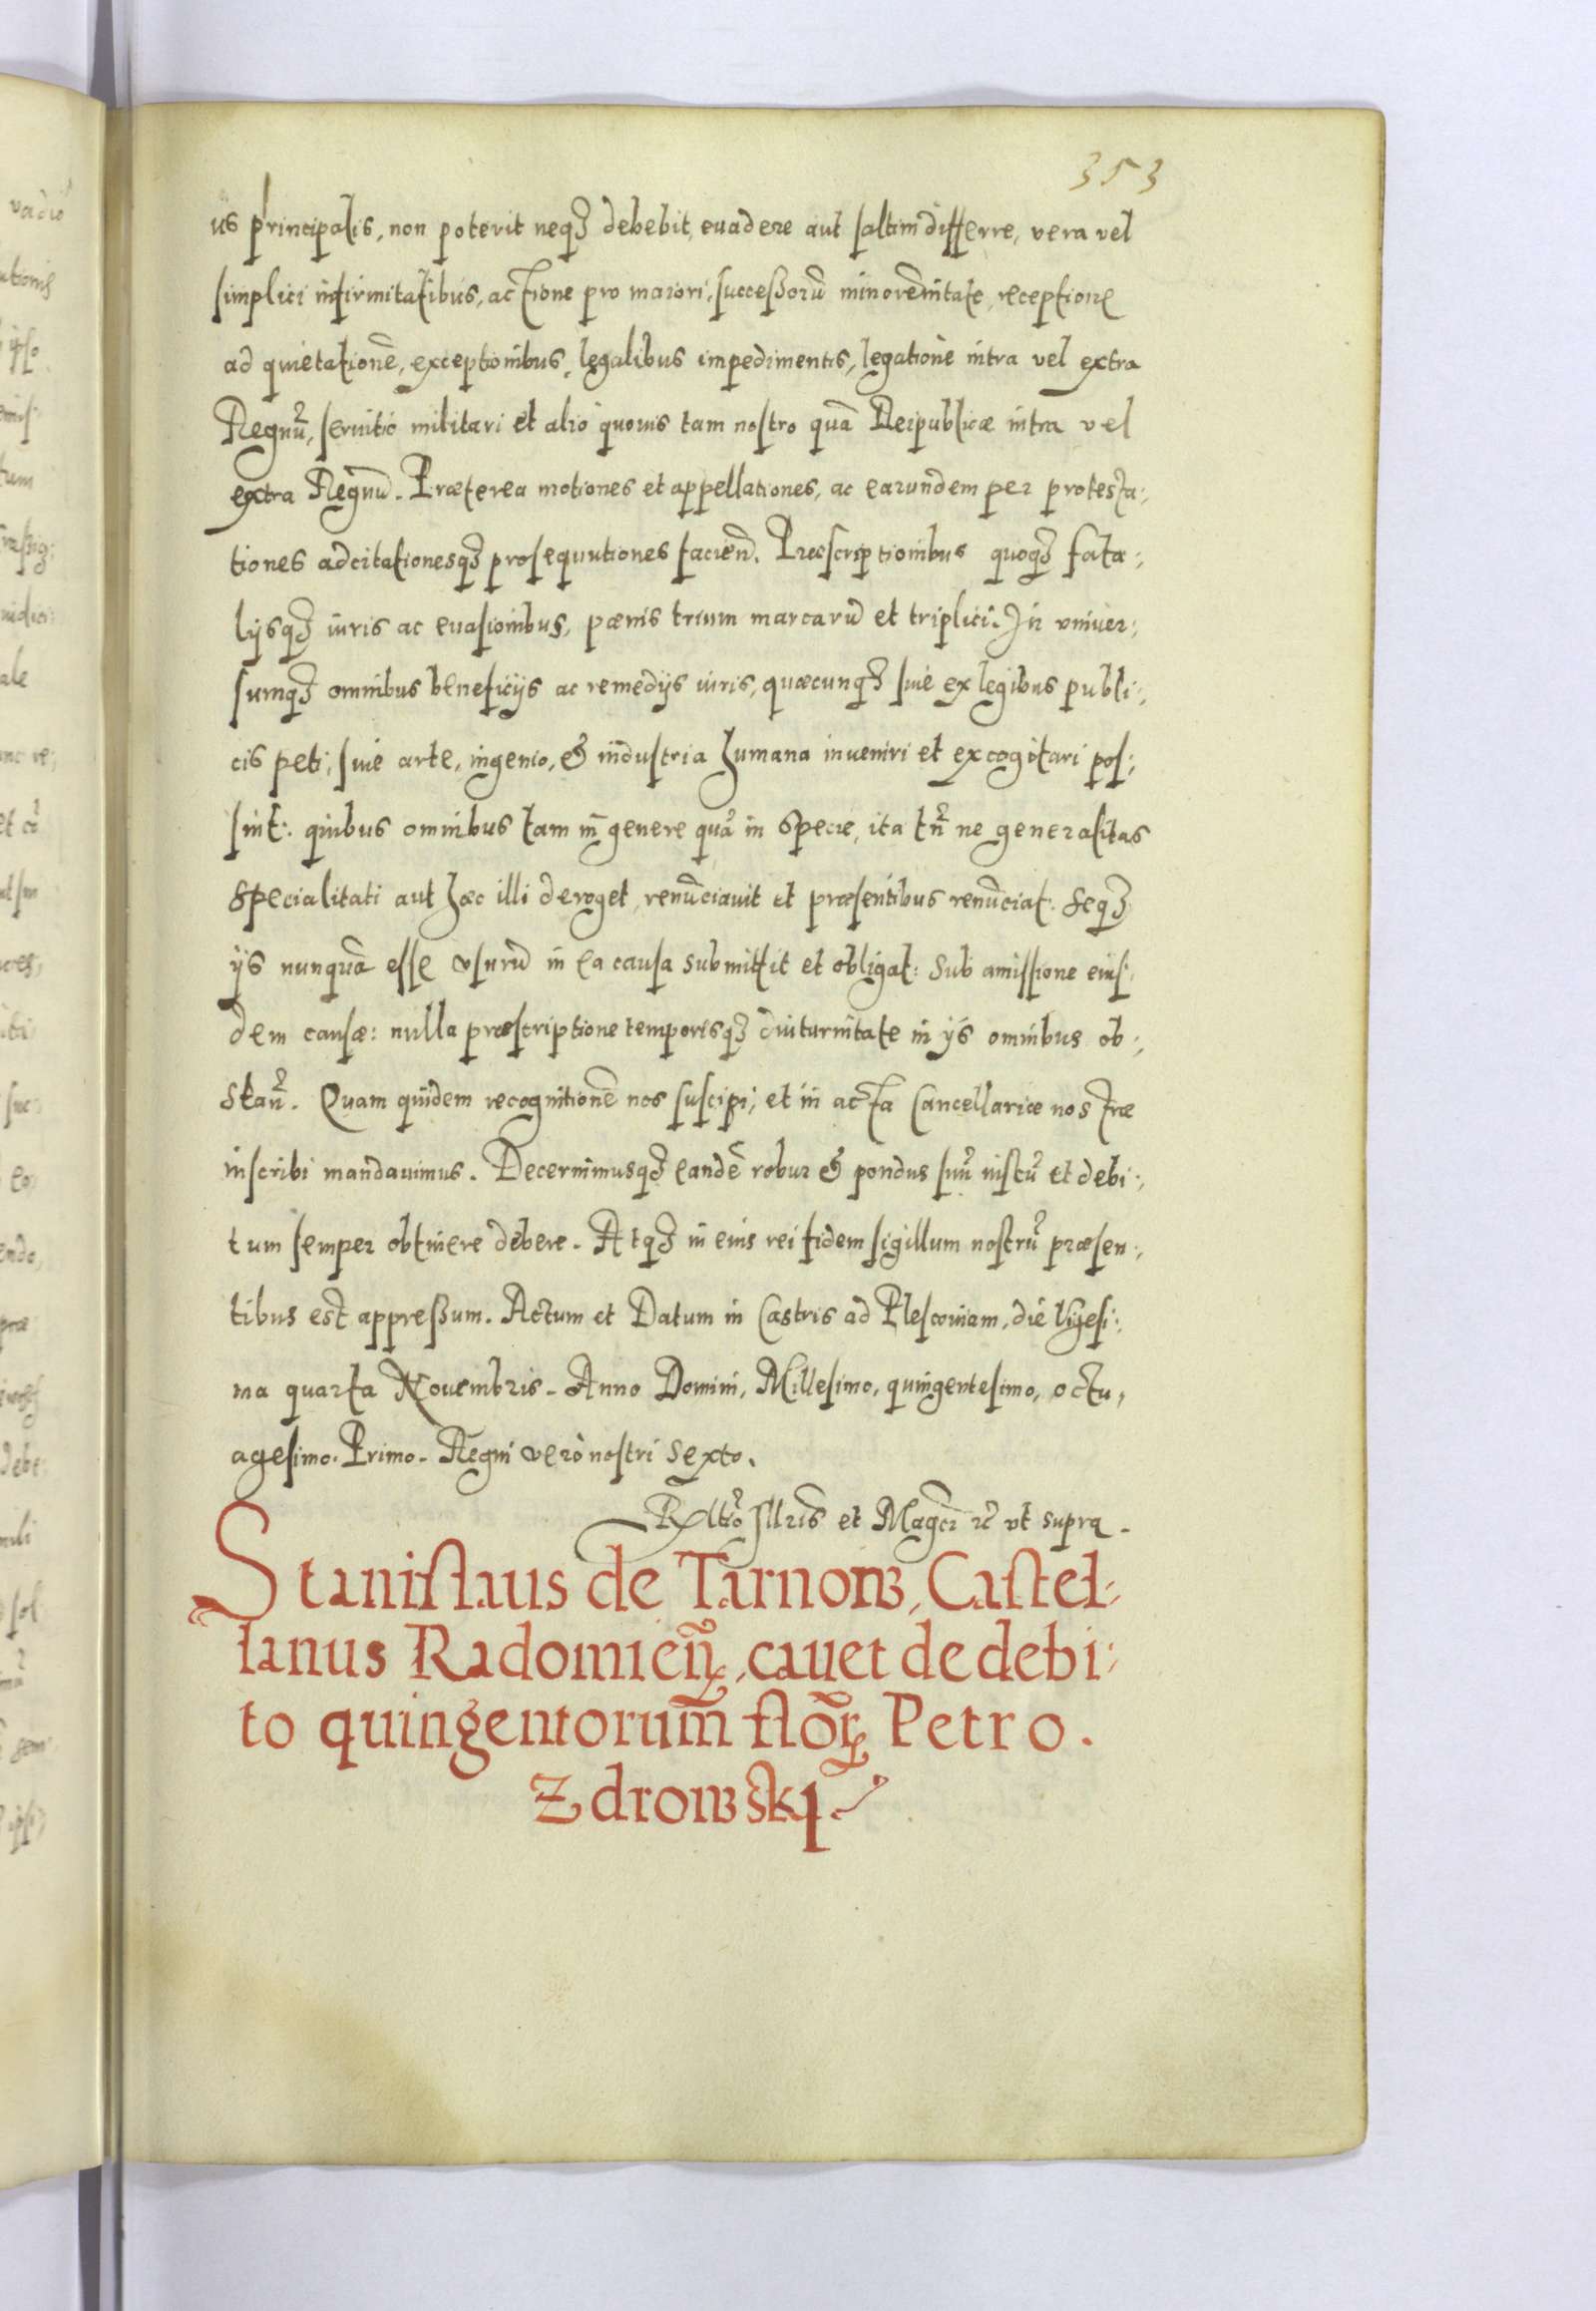 353
us principalis, non poterit neqꝫ debebit, euadere aut saltim differre, vera vel
simplici infirmitatibus, actione pro maiori, successorũ minorẽnitate, receptione
ad quietationẽ, exceptionibus, legalibus impedimentis, legatione intra vel extra
Regnũ, seruitio militari et alio quouis tam nostro quã Reipublicæ intra vel
extra Regnũ. Præterea motiones et appellationes, ac earundem per protesta:
tiones adcitationesqꝫ prosequutiones faciẽd. Præscriptionibus quoqꝫ fata:
lijsqꝫ iuris ac euasionibus, pœnis trium marcarũ et triplici. In vniuer:
sumqꝫ omnibus beneficijs ac remedijs iuris, quæcunqꝫ siue ex legibus publi:
cis peti, siue arte, ingenio, & industria humana inueniri et excogitari pos:
sint: quibus omnibus tam in genere quã in specie, ita tñ ne generalitas
specialitati aut hæc illi deroget, renunciauit et præsentibus renunciat. Seqꝫ
ijs nunquã esse vsurũ in ea causa submittit et obligat: Sub amissione eius:
dem causæ: nulla præscriptione temporisqꝫ diuturnitate in ijs omnibus ob:
stañ. Quam quidem recognitionẽ nos suscipi, et in acta Cancellariæ nostræ
inscribi mandauimus. Decernimusqꝫ eandẽ robur & pondus suũ iustũ et debi:
tum semper obtinere debere. Atqꝫ in eius rei fidem sigillum nostrũ præsen:
tibus est appressum. Actum et Datum in Castris ad Plescouiam, die Vigesi:
ma quarta Nouembris. Anno Domini, Millesimo, quingentesimo, octu,
agesimo. Primo. Regni verò nostri Sexto.
et ut supra.
Stanislaus de Tarnow, Castel:
lanus Radomieñ, cauet de debi:
to quingentorum flor̃ Petro.
Zdrowskị.